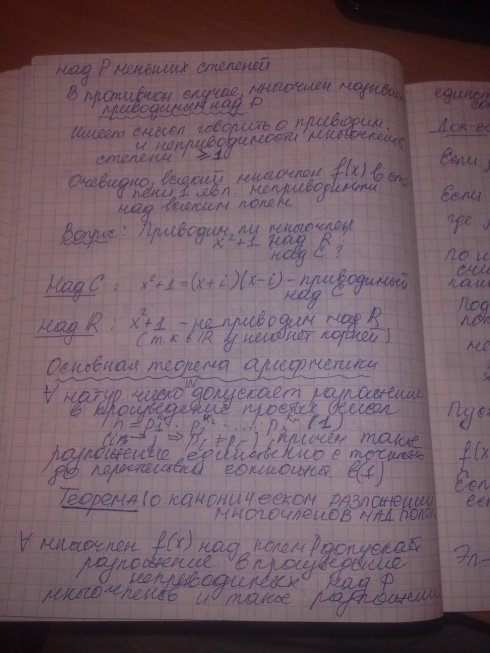 над P меньших степеней
В противном случае, многочлен называют
приводимым над P
Имеет смысл говорить о приводим.
и неприводимости многочленов
степени ≥ 1
Очевидно, всякий многочлен f(x) в сте
пени 1 явл. неприводимым
над всяким полем
Вопрос: Приводим ли многочлен
x²+1 над R
над C ?
Над C: x²+1 = (x+i)(x-i) - приводимый
над C
над R: x²+1 - неприводим над R
(т.к в R у него нет корней)
Основная теорема арифметики
∀ натур число допускает разложение
в произведение простых чисел
(1)
причём такое
разложение единственно с точностью
до перестановки в (1)
Теорема (о каноническом разложении
многочленов над полем
∀ многочлен f(x) над полем P допускает
разложение в произведение
неприводимых над P
многочленов и такое разложение
единст
Док-во
Если
Если
где
Пусть
f(x)